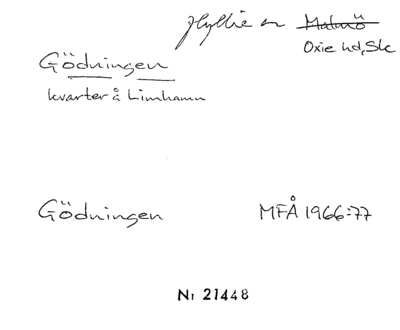 Hyllie sn Malmö
Oxie hd, Sk
Gödningen
kvarter å Limhamn
Gödningen MFÅ 1966:77
Nr 21448